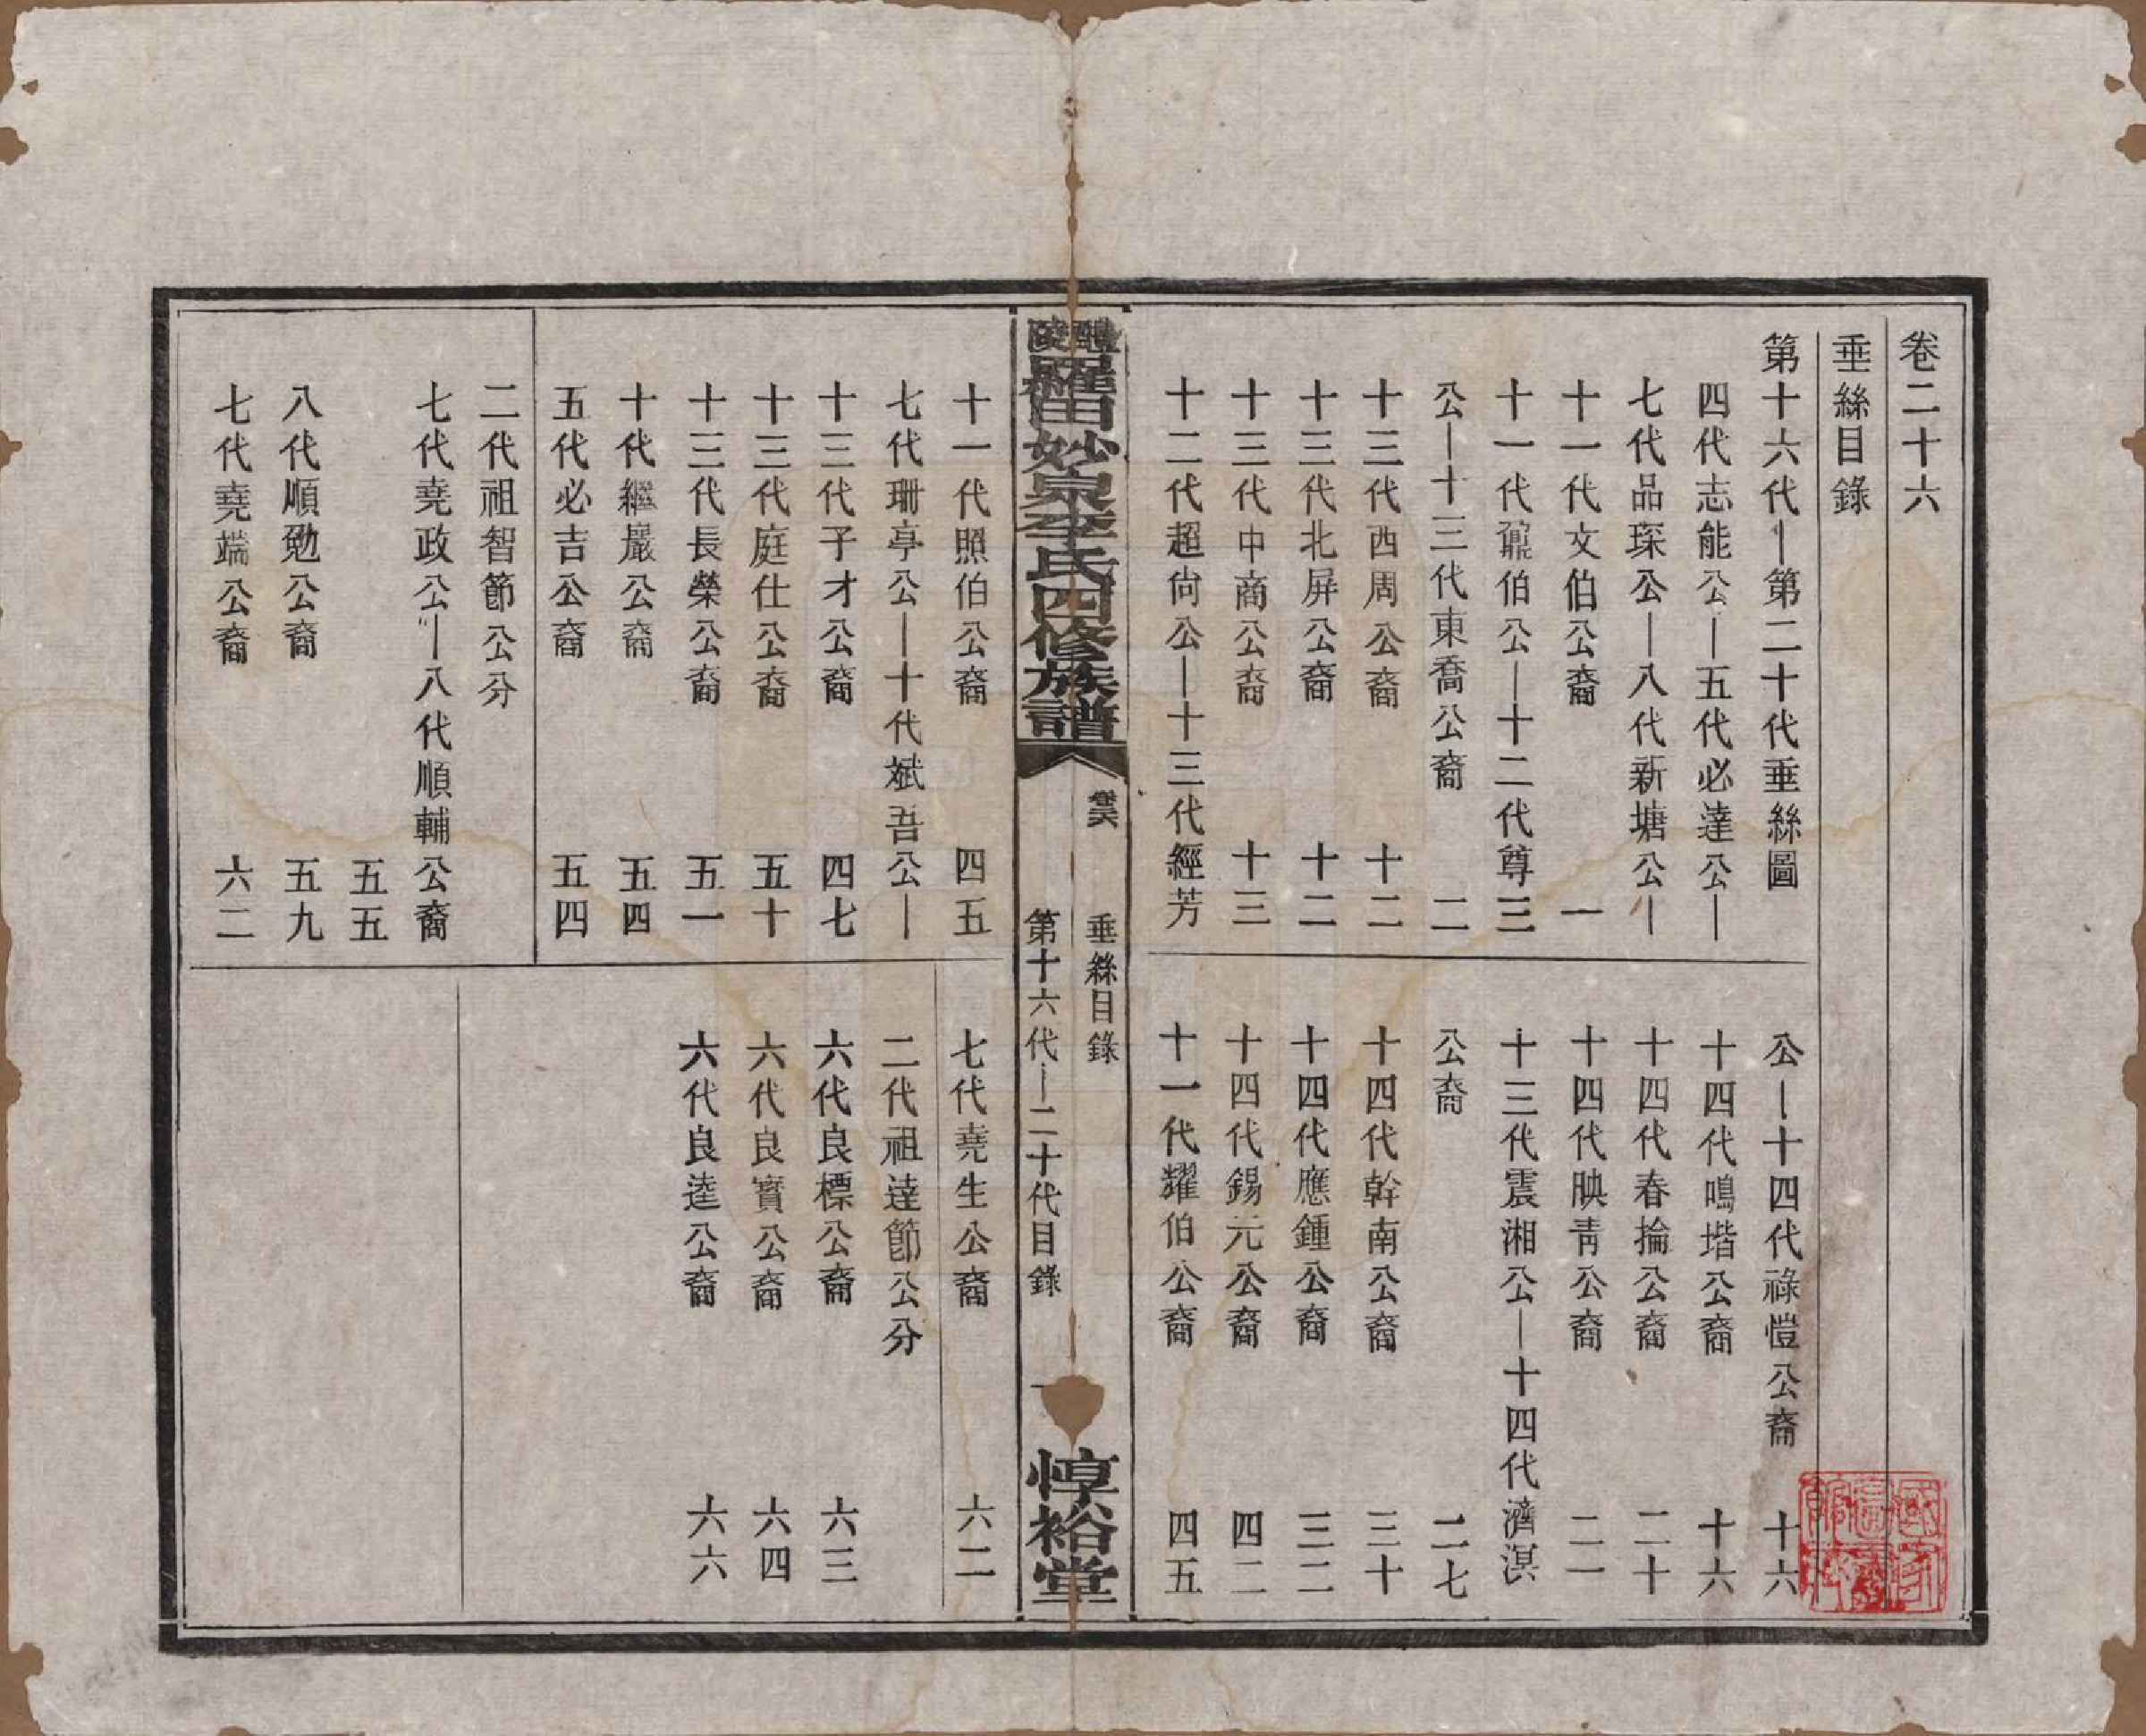 卷二十六
垂絲目錄
第十六代—第二十代垂絲圖
四代志能公—五代必達公—
七代品琛公—八代新塘公—
十一代文伯公裔 一
十一代鼐伯公—十二代尊三
公—十三代東喬公裔 二
十三代西周公裔 十二
十三代北屏公裔 十二
十三代中商公裔 十三
十二代超尙公—十三代經芳
公—十四代祿愷公裔 十六
十四代鳴堦公裔 十六
十四代春掄公裔 二十
十四代映靑公裔 二一
十三代震湘公—十四代濟溟
公裔 二七
十四代幹南公裔 三十
十四代應鍾公裔 三二
十四代錫元公裔 四二
十一代耀伯公裔 四五
醴陵羅田妙泉李氏四修族譜
垂絲目錄
第十六代—二十代目錄
一
惇裕堂
十一代照伯公裔 四五
七代珊亭公—十代斌吾公—
十三代子才公裔 四七
十三代庭仕公裔 五十
十三代長榮公裔 五一
十代繼巖公裔 五四
五代必吉公裔 五四
二代祖智節公分
七代堯政公—八代順輔公裔
五五
八代順勉公裔 五九
七代堯端公裔 六二
七代堯生公裔 六二
二代祖達節公分
六代良標公裔 六三
六代良實公裔 六四
六代良逵公裔 六六